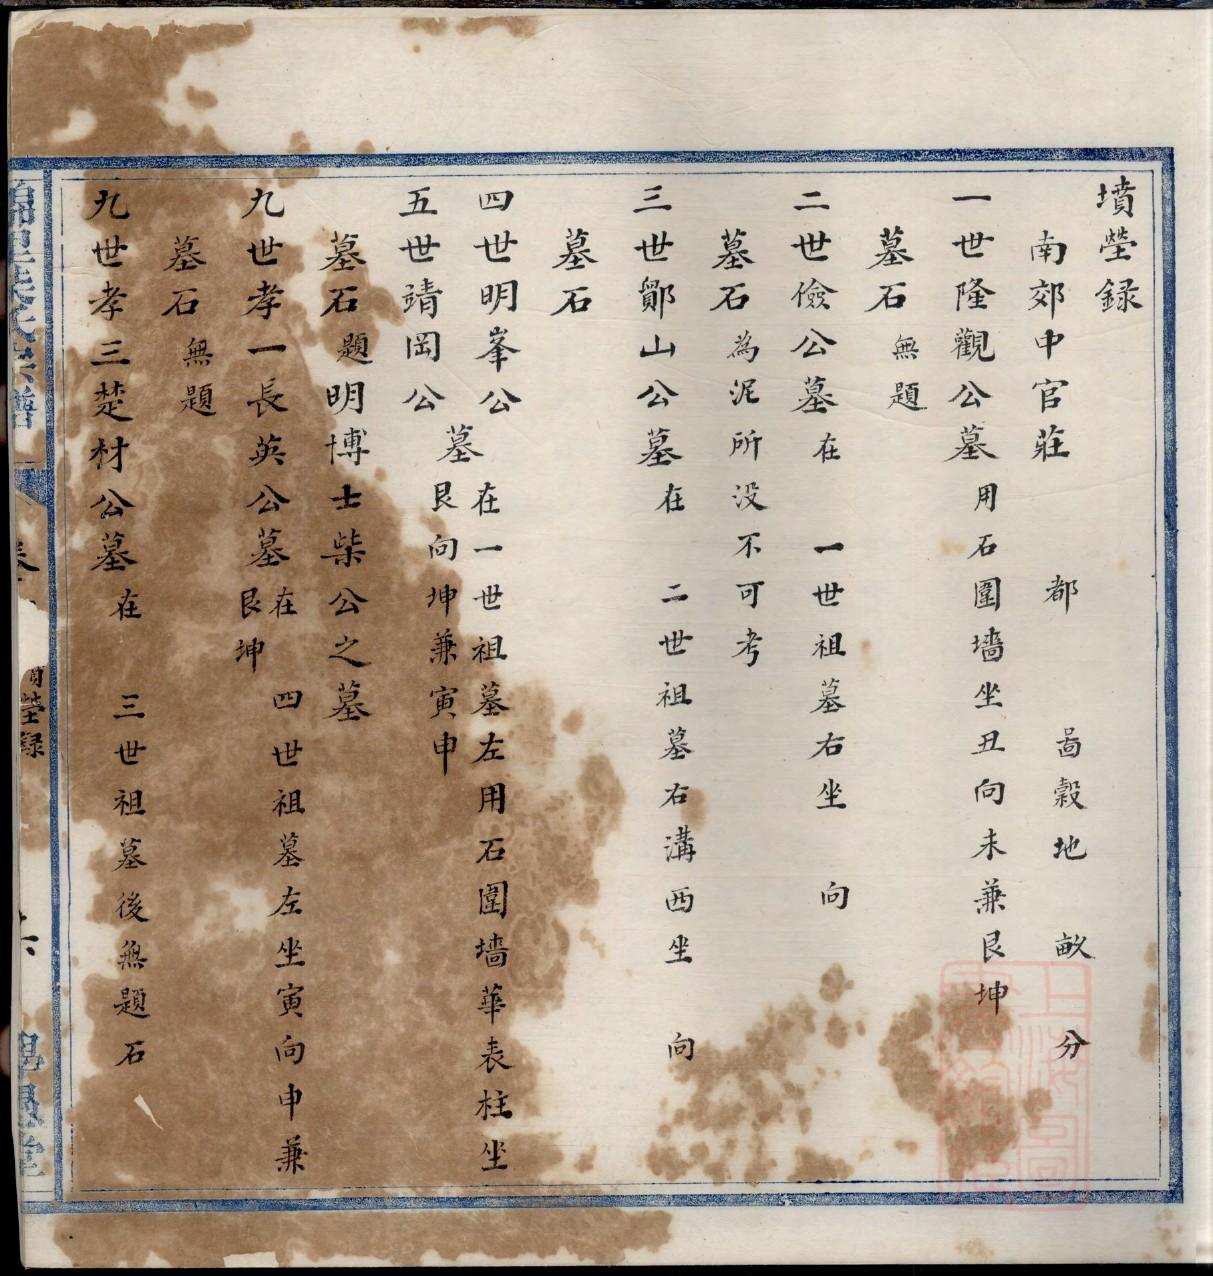 墳塋録
南郊中官莊 都 啚穀地 畝 分
一世隆觀公墓用石圍墻坐丑向未兼艮坤
墓石無題
二世儉公墓在 一世祖墓右坐 向
墓石為泥所没不可考
三世鄭山公墓在 二世祖墓右溝西坐 向
墓石
四世明峯公
五世靖岡公
墓在一世祖墓左用石圍墻華表柱坐
艮向坤兼寅申
墓石題明博士柴公之墓
九世孝一長英公墓在 四世祖墓左坐寅向申兼
艮坤
墓石無題
九世孝三楚材公墓在 三世祖墓後無題石
塋録